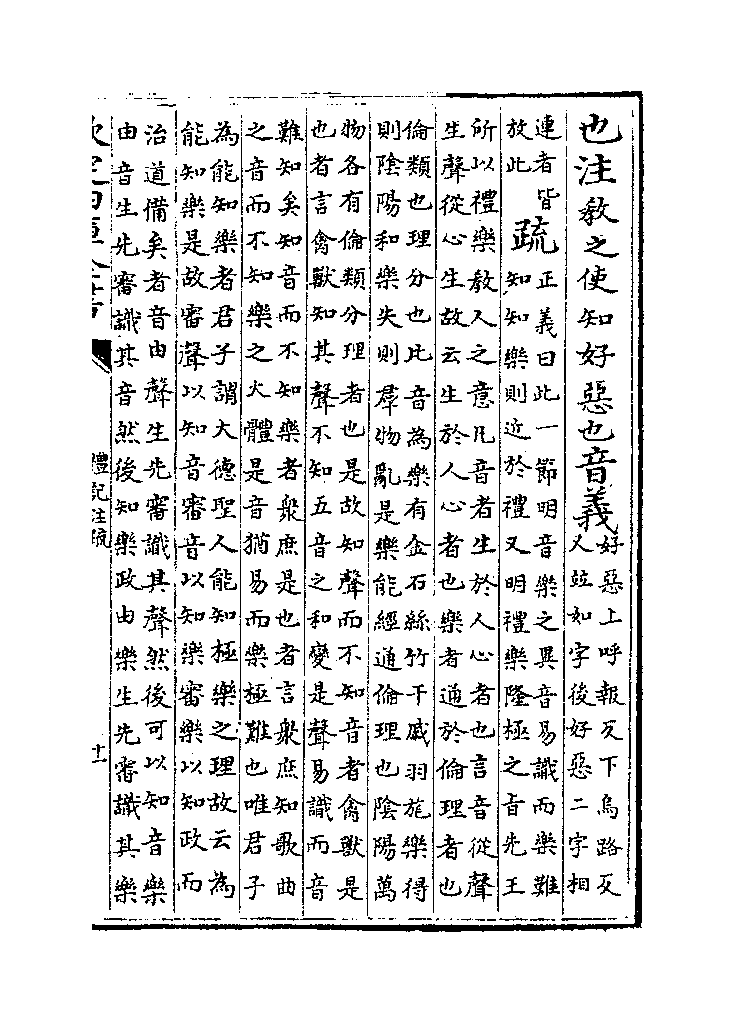 也注教之使知好惡也音義
好惡上呼報反下烏路反
又竝如字後好惡二字相
連者皆
放此
疏
正義曰此一節明音樂之異音易識而樂難
知知樂則近於禮又明禮樂隆極之旨先王
所以禮樂教人之意凡音者生於人心者也言音從聲
生聲從心生故云生於人心者也樂者通於倫理者也
倫類也理分也比音為樂有金石絲竹干戚羽旄樂得
則陰陽和樂失則羣物亂是樂能經通倫理也陰陽萬
物各有倫類分理者也是故知聲而不知音者禽獸是
也者言禽獸知其聲不知五音之和變是聲易識而音
難知矣知音而不知樂者衆庶是也者言衆庶知歌曲
之音而不知樂之大體是音猶易而樂極難也唯君子
為能知樂者君子謂大德聖人能知極樂之理故云為
能知樂是故審聲以知音審音以知樂審樂以知政而
治道備矣者音由聲生先審識其聲然後可以知音樂
由音生先審識其音然後知樂政由樂生先審識其樂
禮記注疏
十一